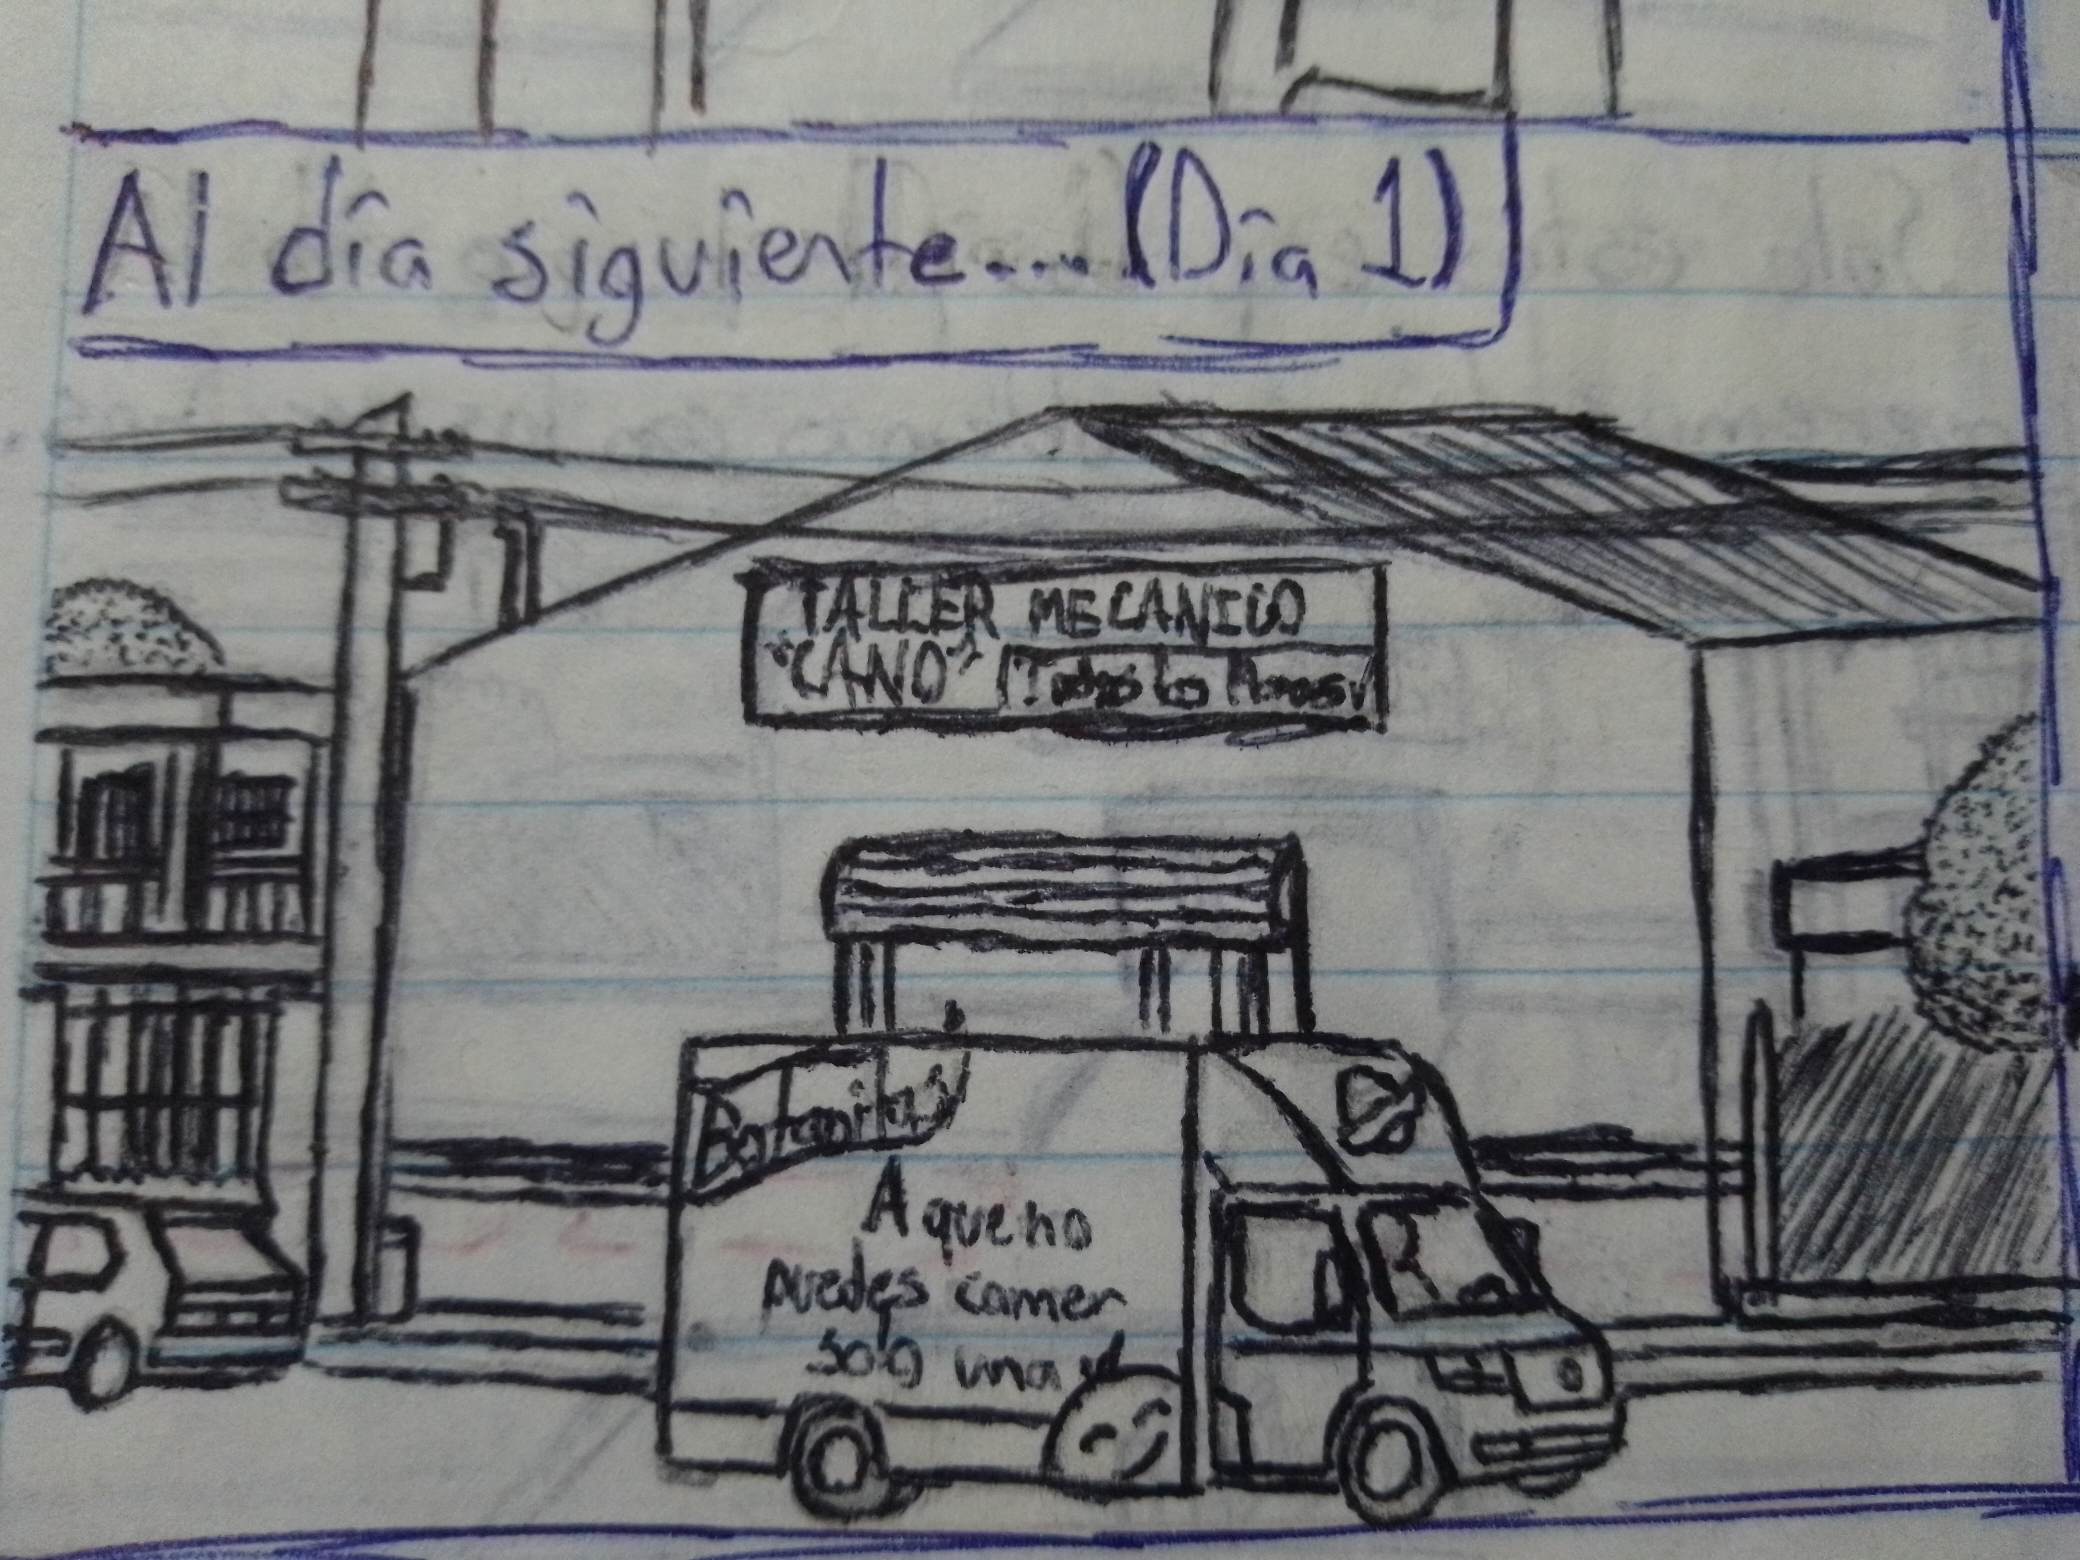 Al día siguiente... (Día 1)
TALLER MECANICO
"CANO"
Botanitas
A que no
puedes comer
solo una